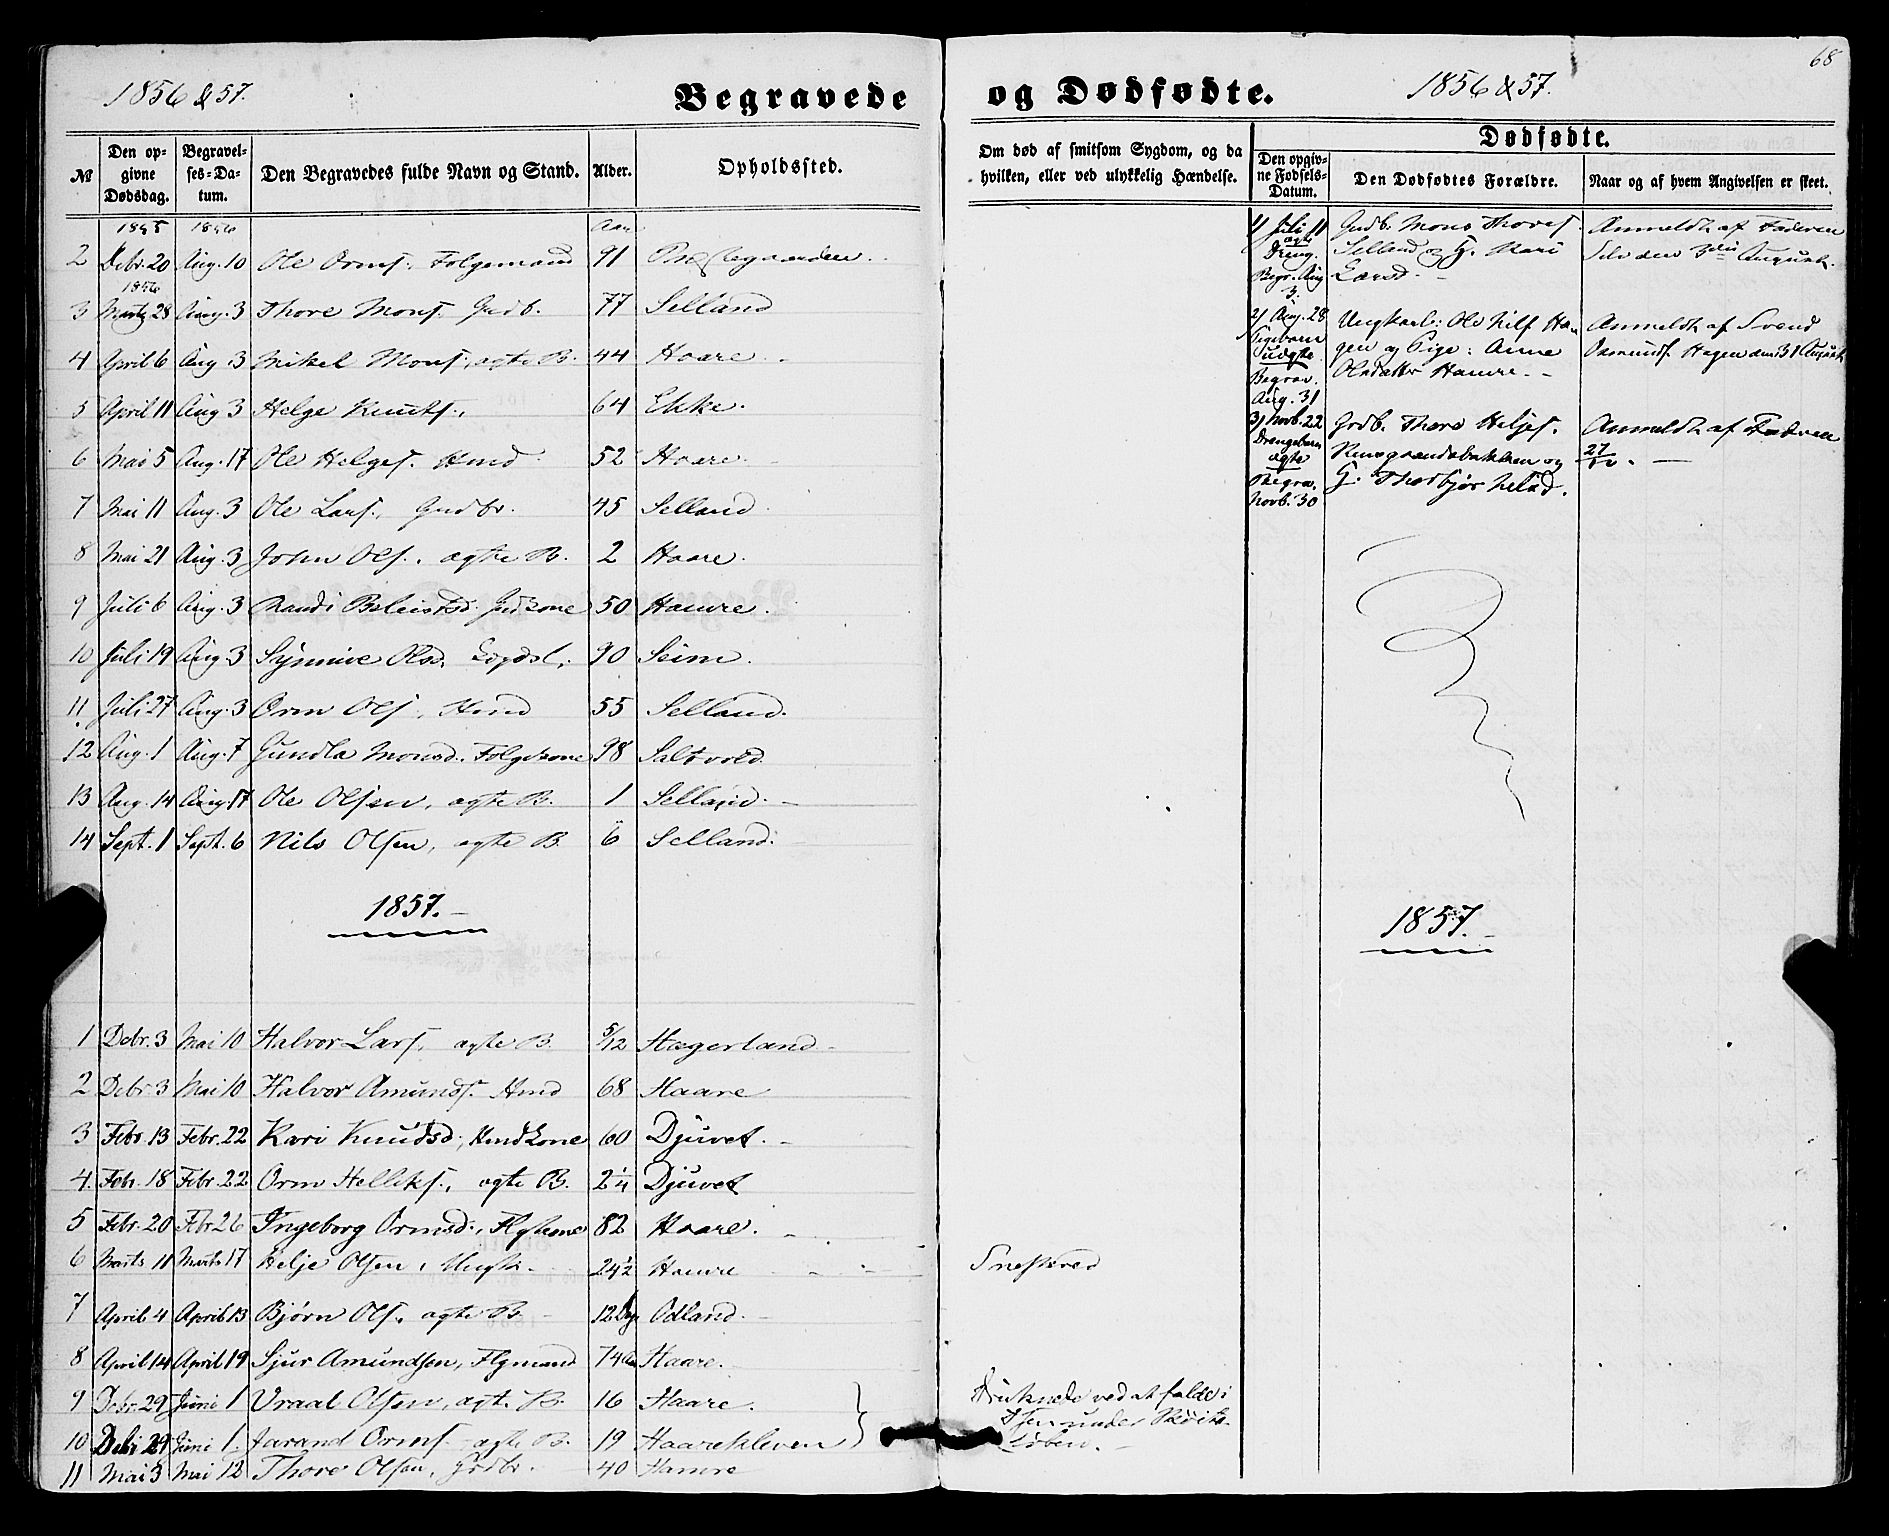 68
1856 & 57. Begravede og Dødfødte. 1856 & 57.
№ Den op- givne Dødsdag. Begravel- ses-Da- tum. Den Begravedes fulde Navn og Stand. Alder. Opholdssted.
1855 1856 Aar
2 Debr. 20 Aug. 10 Ole Ormf. Folgemand 91 Præstegaarden.
1856
3 Marts 28 Aug. 3 Thore Monsf. Grdb. 77 Selland
4 April 6 Aug 3 Mikel Monsf., ægte B. 44 Haare. -
5 April 11 Aug 3 Helge Knutsf., 64 Ekke.
6 Mai 5 Aug. 17 Ole Helgef. Hmd 52 Haare.
7 Mai 11 Aug. 3 Ole Larsf., Grdbr. 45 Selland.
8 Mai 21 Aug. 3 John Olsf., ægte B. 2 Haare.
9 Juli 6 Aug. 3 Randi Grdkone 50 Hamre.
10 Juli 19 Aug. 3 Synnive Olsd. Lægdsl. 90 Seim.
11 Juli 27 Aug. 3 Orm Olsf., Hmd 55 Selland.
12 Aug. 1 Aug. 7 Gundla Monsd. Folgekone 98 Saltvold.
13 Aug. 14 Aug 17 Ole Olsen, ægte B. 1 Selland. -
14 Sept. 1 Sept. 6 Nils Olsen, ægte B. 6 Selland.
1857. -
1 Debr. 3 Mai 10 Halvor Larsf., ægte B. 5/12 Hægerland -
2 Debr. 3 Mai 10 Halvor Amundsf. Hmd 68 Haare
3 Febr. 13 Febr. 22 Kari Knudsd., Hmdkone 60 Djuvet. -
4. Febr. 18 Febr. 22 Orm Helliksf., ægte B. 2 1/4 Djuvet
5 Febr. 20 Febr 26 Ingeborg Ormsd., Flgkone 82 Haare. -
6 Marts 11 Marts 17 Helje Olsen, Ungk. - 24 1/2 Hamre - - -
7 April 4 April 13 Bjørn Olsf. ægte B. - 12 Dg. Odland. -
8 April 14 April 19 Sjur Amundsen, Flgmand 74 Aar Haare.
9 Debr. 29 Juni 1 Vraal Olsen, ægte B. 16 Haare.
10 Debr 29 Juni 1. Jarand Ormsf. ægte B. 19 Haarekleven
11 Mai 3 Mai 12 Thore Olsen, Grdbr. 40 Hamre
Om død af smitsom Sygdom, og da
hvilken, eller ved ulykkelig Hændelse.
Sneskred
Druknede ved at falde i
under
Dødfødte.
Den opgiv- ne Fødsels- Datum. Den Dødfødtes Forældre. Naar og af hvem Angivelsen er skeet.
1) Juli 11 Grdb. Mons Thoresf. Anmeldt af Faderen
ægte
Dreng. Selland og G. Kari Selv den 3die August.
Begr. Aug
3.
2) Aug. 28 Ungkarl: Ole Nilsf. Ha- Anmeldt af Svend
Pigebarn gen og Pige: Anne Osmundsf. Hagen den 31 August
uægte Olsdatter Hamre. -
Begrav.
Aug. 31
3) Novb. 22 Grdb. Thore Heljesf. Anmeldt af Faderen
Drengebarn
ægte og 27/11. -
Begrav. G. Thorbjør Nelsd.
Novb. 30
1857. -